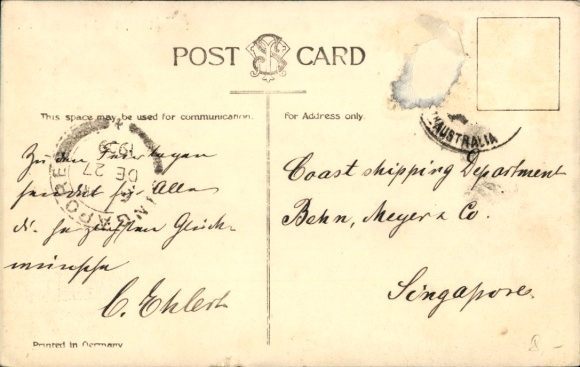 POST CARD
This space may be used for communication.
For Address only.
Zu den Feiertagen
sendet für Alle
die herzlichsten Glück-
wünsche
C. Ehlert
Coast shipping Department
Behn, Meyer & Co.
Singapore.
AUSTRALIA
SINGAPORE
DE 27
Printed in Germany